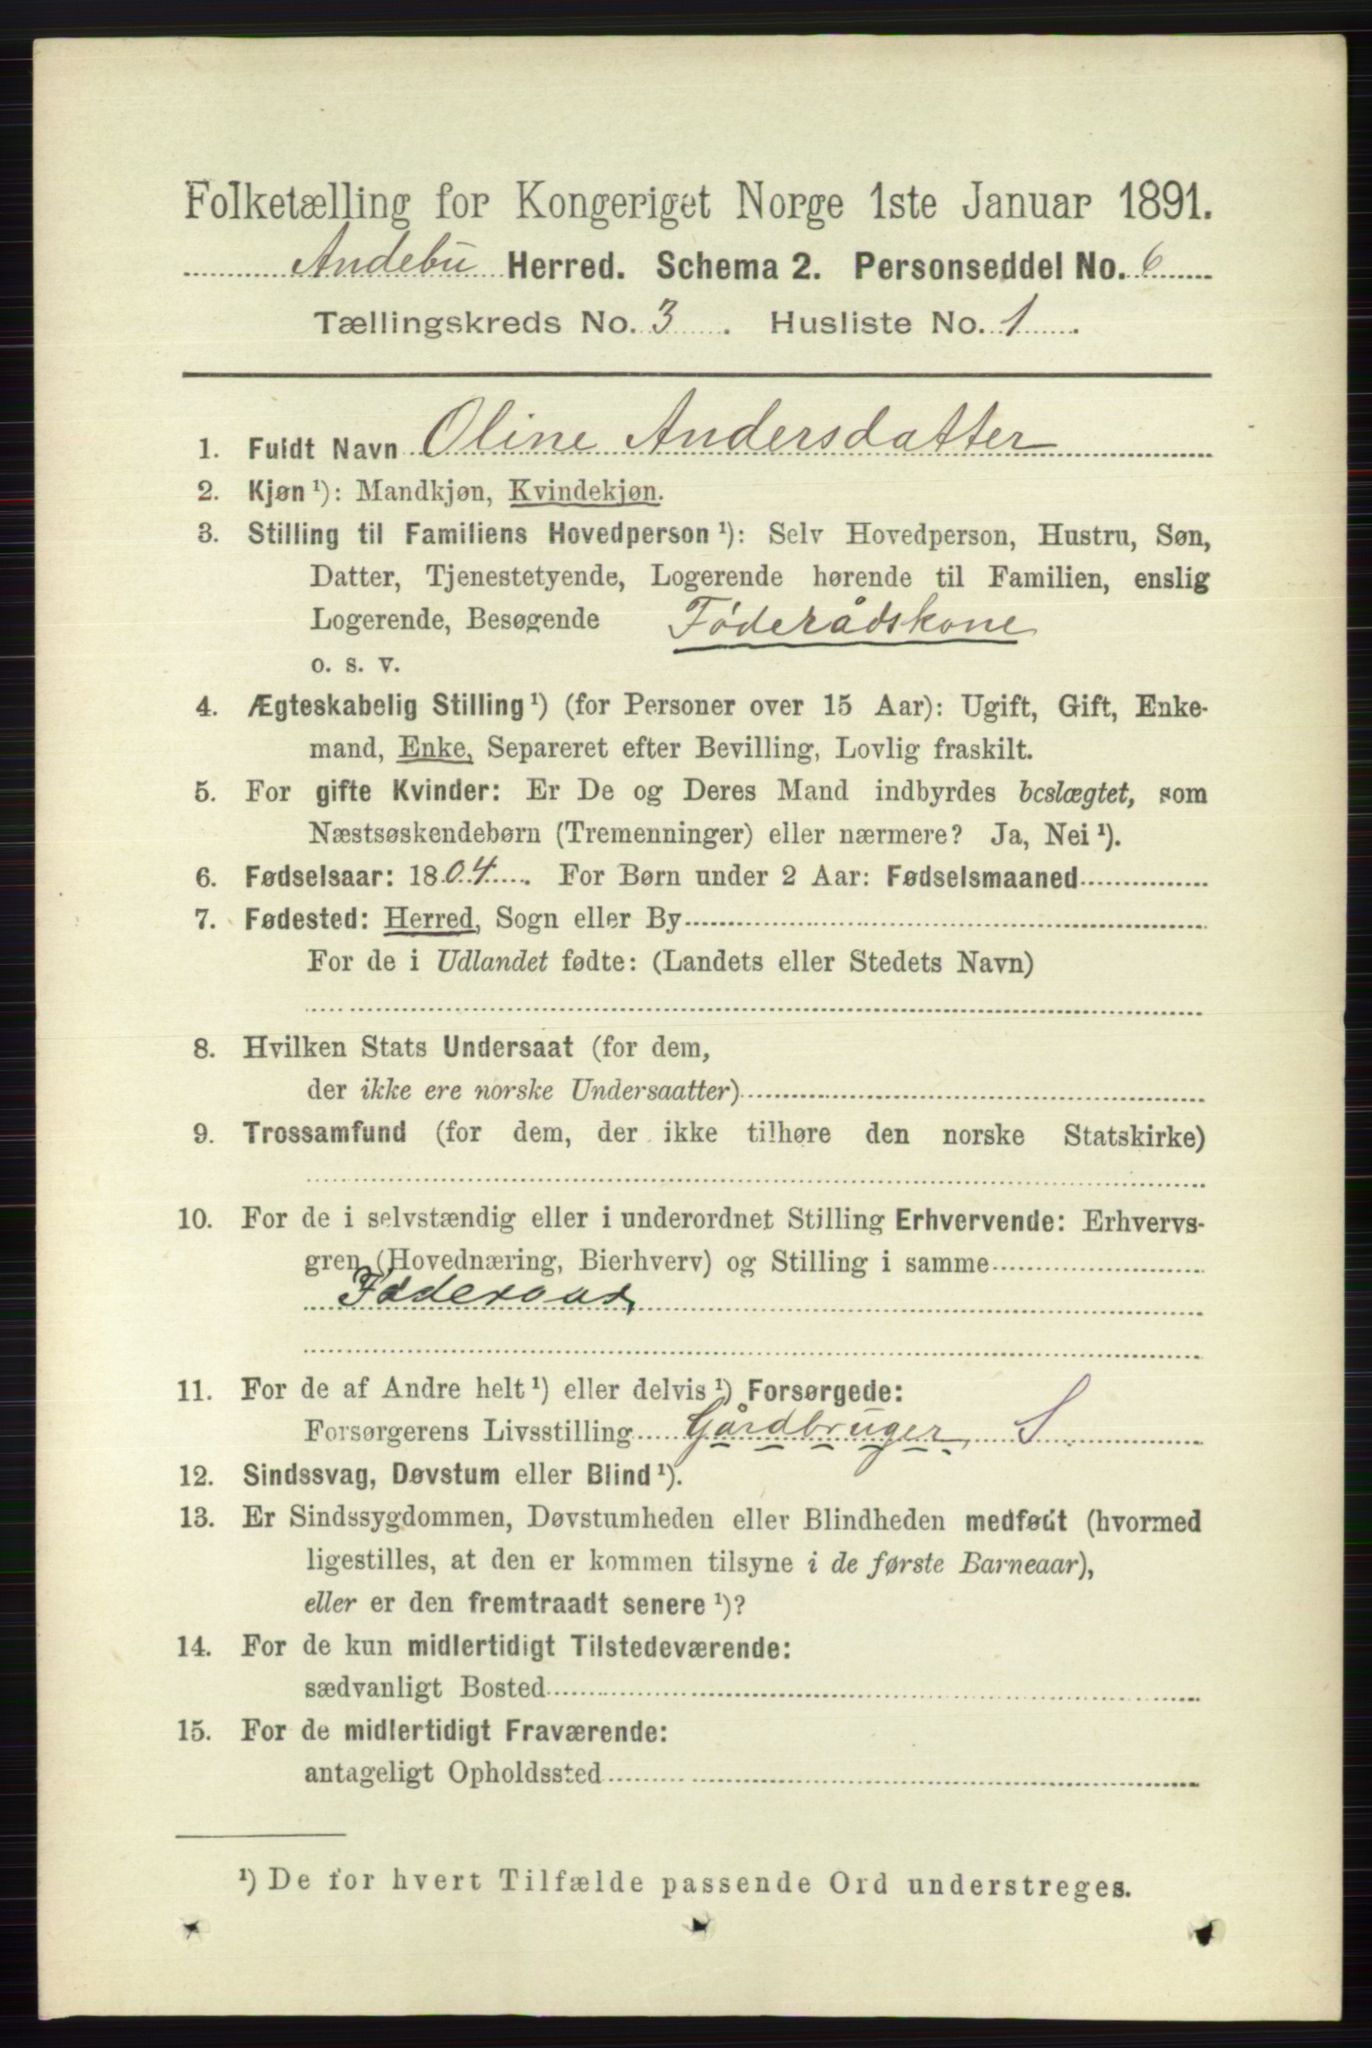 Folketælling for Kongeriget Norge 1ste Januar 1891.
Andebu Herred. Schema 2. Personseddel No. 6
Tællingskreds No. 3. Husliste No. 1.
1. Fuldt Navn Oline Andersdatter
2. Kjøn¹): Mandkjøn, Kvindekjøn.
3. Stilling til Familiens Hovedperson¹): Selv Hovedperson, Hustru, Søn,
Datter, Tjenestetyende, Logerende hørende til Familien, enslig
Logerende, Besøgende Føderådskone
o. s. v.
4. Ægteskabelig Stilling¹) (for Personer over 15 Aar): Ugift, Gift, Enke-
mand, Enke, Separeret efter Bevilling, Lovlig fraskilt.
5. For gifte Kvinder: Er De og Deres Mand indbyrdes beslægtet, som
Næstsøskendebørn (Tremenninger) eller nærmere? Ja, Nei¹).
6. Fødselsaar: 1804. For Børn under 2 Aar: Fødselsmaaned
7. Fødested: Herred, Sogn eller By
For de i Udlandet fødte: (Landets eller Stedets Navn)
8. Hvilken Stats Undersaat (for dem,
der ikke ere norske Undersaatter)
9. Trossamfund (for dem, der ikke tilhøre den norske Statskirke)
10. For de i selvstændig eller i underordnet Stilling Erhvervende: Erhvervs-
gren (Hovednæring, Bierhverv) og Stilling i samme
Føderaad
11. For de af Andre helt¹) eller delvis¹) Forsørgede:
Forsørgerens Livsstilling Gårdbruger S
12. Sindssvag, Døvstum eller Blind¹).
13. Er Sindssygdommen, Døvstumheden eller Blindheden medfødt (hvormed
ligestilles, at den er kommen tilsyne i de første Barneaar),
eller er den fremtraadt senere¹)?
14. For de kun midlertidigt Tilstedeværende:
sædvanligt Bosted
15. For de midlertidigt Fraværende:
antageligt Opholdssted
¹) De for hvert Tilfælde passende Ord understreges.